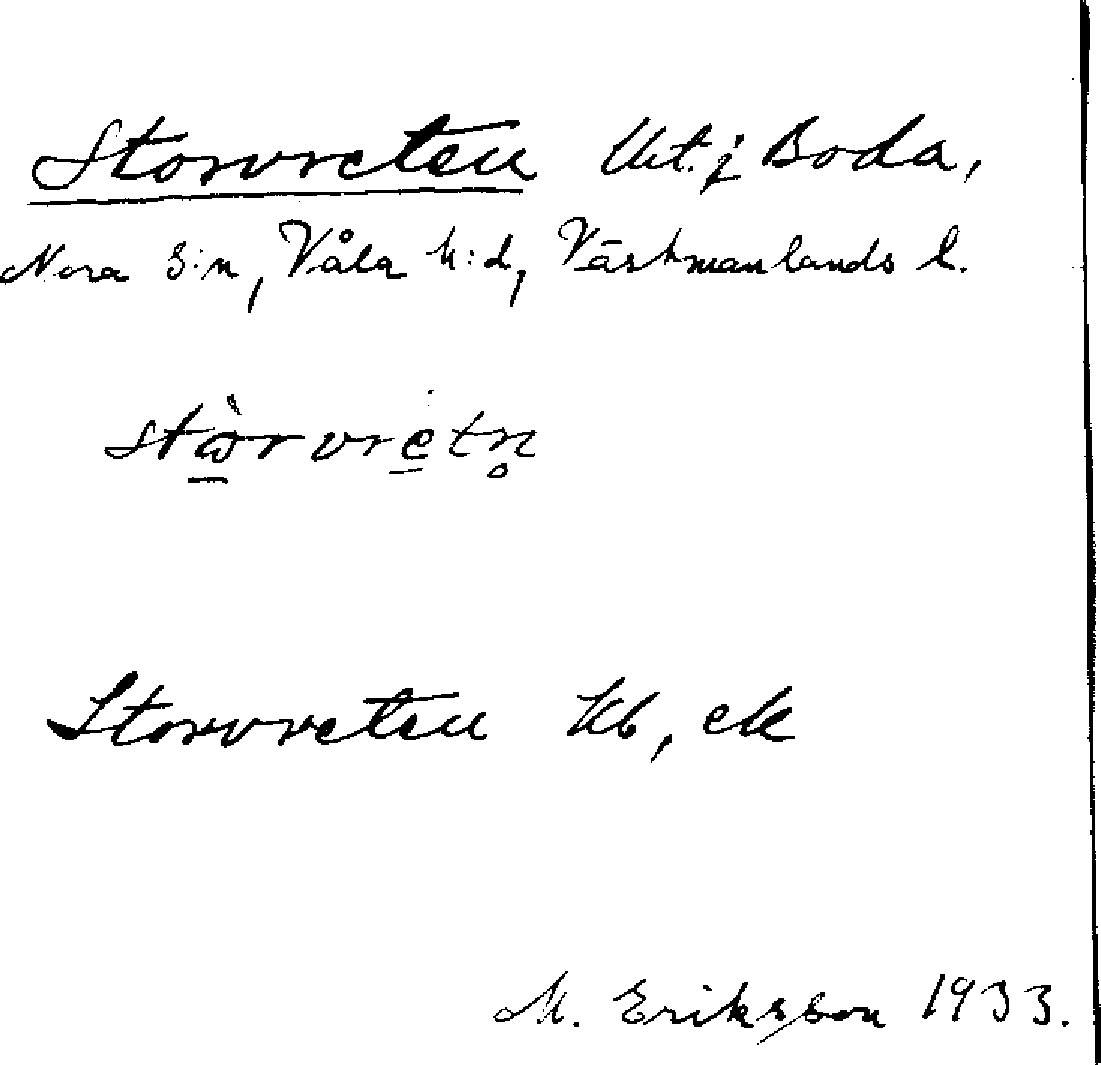 Storvreten Utj Boda,
Nora s:n, Våla h:d, Västmanlands l.
stὼrvretn̥
Storvreten kb, ek
M. Eriksson 1933.